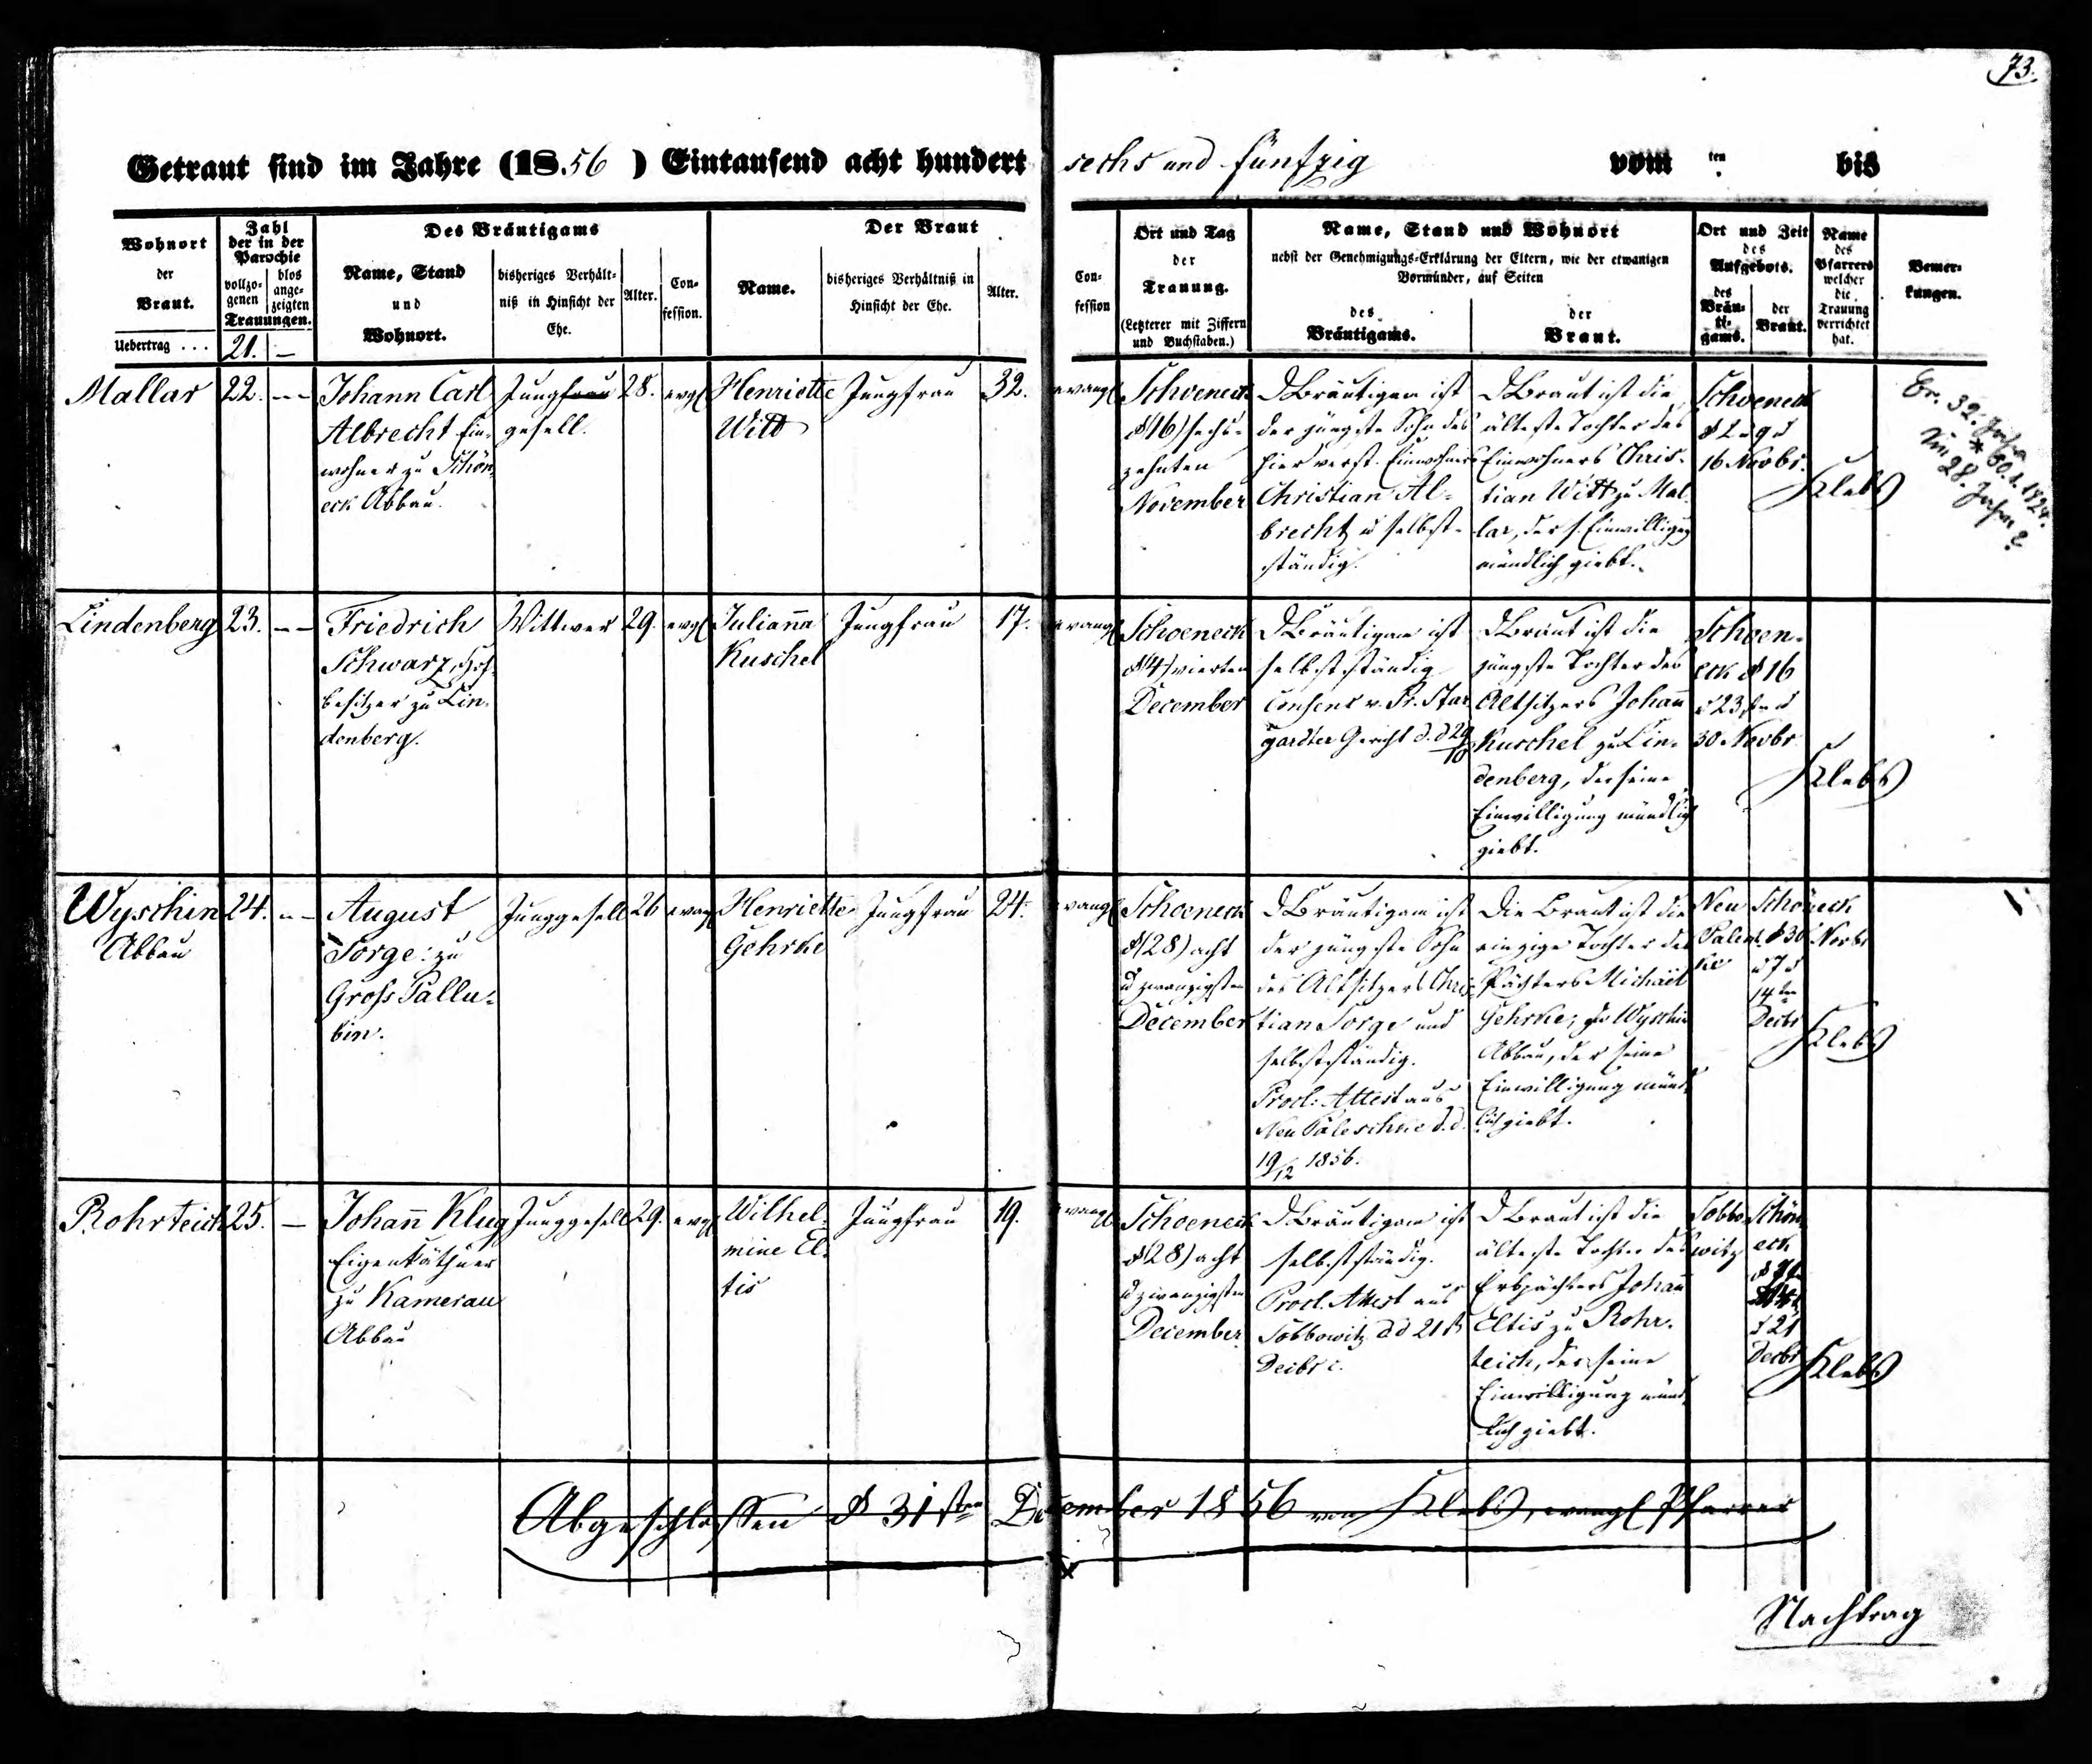 73.
Getraut sind im Jahre (18.56 ) Eintausend acht hundert sechs und fünfzig vom ten bis
Wohnort
der
Braut.
Zahl
der in der
Parochie
vollzo-
genen
blos
ange-
zeigten
Trauungen.
Des Bräutigams
Name, Stand
und
Wohnort.
bisheriges Verhält-
niß in Hinsicht der
Ehe.
Alter.
Con-
fession.
Der Braut
Name.
bisheriges Verhältniß in
Hinsicht der Ehe.
Alter.
Con-
fession
Ort und Tag
der
Trauung.
(Letzterer mit Ziffern
und Buchstaben.)
Name, Stand und Wohnort
nebst der Genehmigungs-Erklärung der Eltern, wie der etwanigen
Vormünder, auf Seiten
des
Bräutigams.
der
Braut.
Ort und Zeit
des
Aufgebots.
des
Bräu-
ti-
gams.
der
Braut.
Name
des
Pfarrers
welcher
die
Trauung
verrichtet
hat.
Bemer-
kungen.
Uebertrag . . . 21. —
Mallar
22. --
Johann Carl
Albrecht Ein-
wohner zu Schön-
eck Abbau.
Jungfrau
gesell.
28.
evgl
Henriette
Witt
Jungfrau
32.
evangl
Schoeneck
d (16) sechs-
zehnten
November
D Bräutigam ist
der jüngste Sohn des
hier verst. Einwohners
Christian Al-
brecht u selbst-
ständig.
D Braut ist die
älteste Tochter des
Einwohners Chris-
tian Witt zu Mal-
lar, der s. Einwilligung
mündlich giebt.
Schoeneck
d 2 u 9 u
16 Novbr.
Klebs
Er. 32. Jahre
* 30.1.1824.
Im 28. Jahre?
Lindenberg
23. --
Friedrich
Schwarz, Hof-
besitzer zu Lin-
denberg.
Wittwer
29.
evgl
Julianna
Kuschel
Jungfrau
17.
evangl
Schoeneck
d (4) vierten
December
D Bräutigam ist
selbstständig
Consens v. Pr. Star-
gardter Gericht d. d 29/10
D Braut ist die
jüngste Tochter des
Altsitzers Johann
Kuschel zu Lin-
denberg, der seine
Einwilligung mündlich
giebt.
Schoen-
eck d 16
u 23sten u
30 Novbr
Klebs
Wyschin
Abbau
24. --
August
Sorge: zu
Gross Pallu-
bin.
Junggesell
26
evangl
Henriette
Gehrke
Jungfrau
24.
evangl
Schoeneck
d (28) acht
u zwanzigsten
December
D Bräutigam ist
der jüngste Sohn
des Altsitzers Chris-
tian Sorge und
selbstständig.
Procl: Attest aus
Neu Paleschke d. d.
19/12 1856.
Die Braut ist die
einzige Tochter des
Pächters Michael
Gehrke, zu Wyschin
Abbau, der seine
Einwilligung münd-
lich giebt.
Neu
Schöneck
d 30 Novbr
u 7 u
14ten
Decbr
Klebs
Rohrteich
25. —
Johann Klug
Eigenkäthner
zu Kamerau
Abbau
Junggesell
29.
evgl
Wilhel-
mine El-
tis
Jungfrau
19.
evangl
Schoeneck
d (28) acht
u zwanzigsten
December
D Bräutigam ist
selbstständig.
Procl. Attest aus
Sobbowitz d d 21st
Decbr c.
D Braut ist die
älteste Tochter des
Erbpächters Johann
Eltis zu Rohr-
teich, der seine
Einwilligung münd-
lich giebt.
Sobbo-
witz
Schön-
eck
u 21
Decbr
Klebs
Abgeschlossen d 31sten December 1856 von Klebs, evangl Pfarrer
Nachtrag